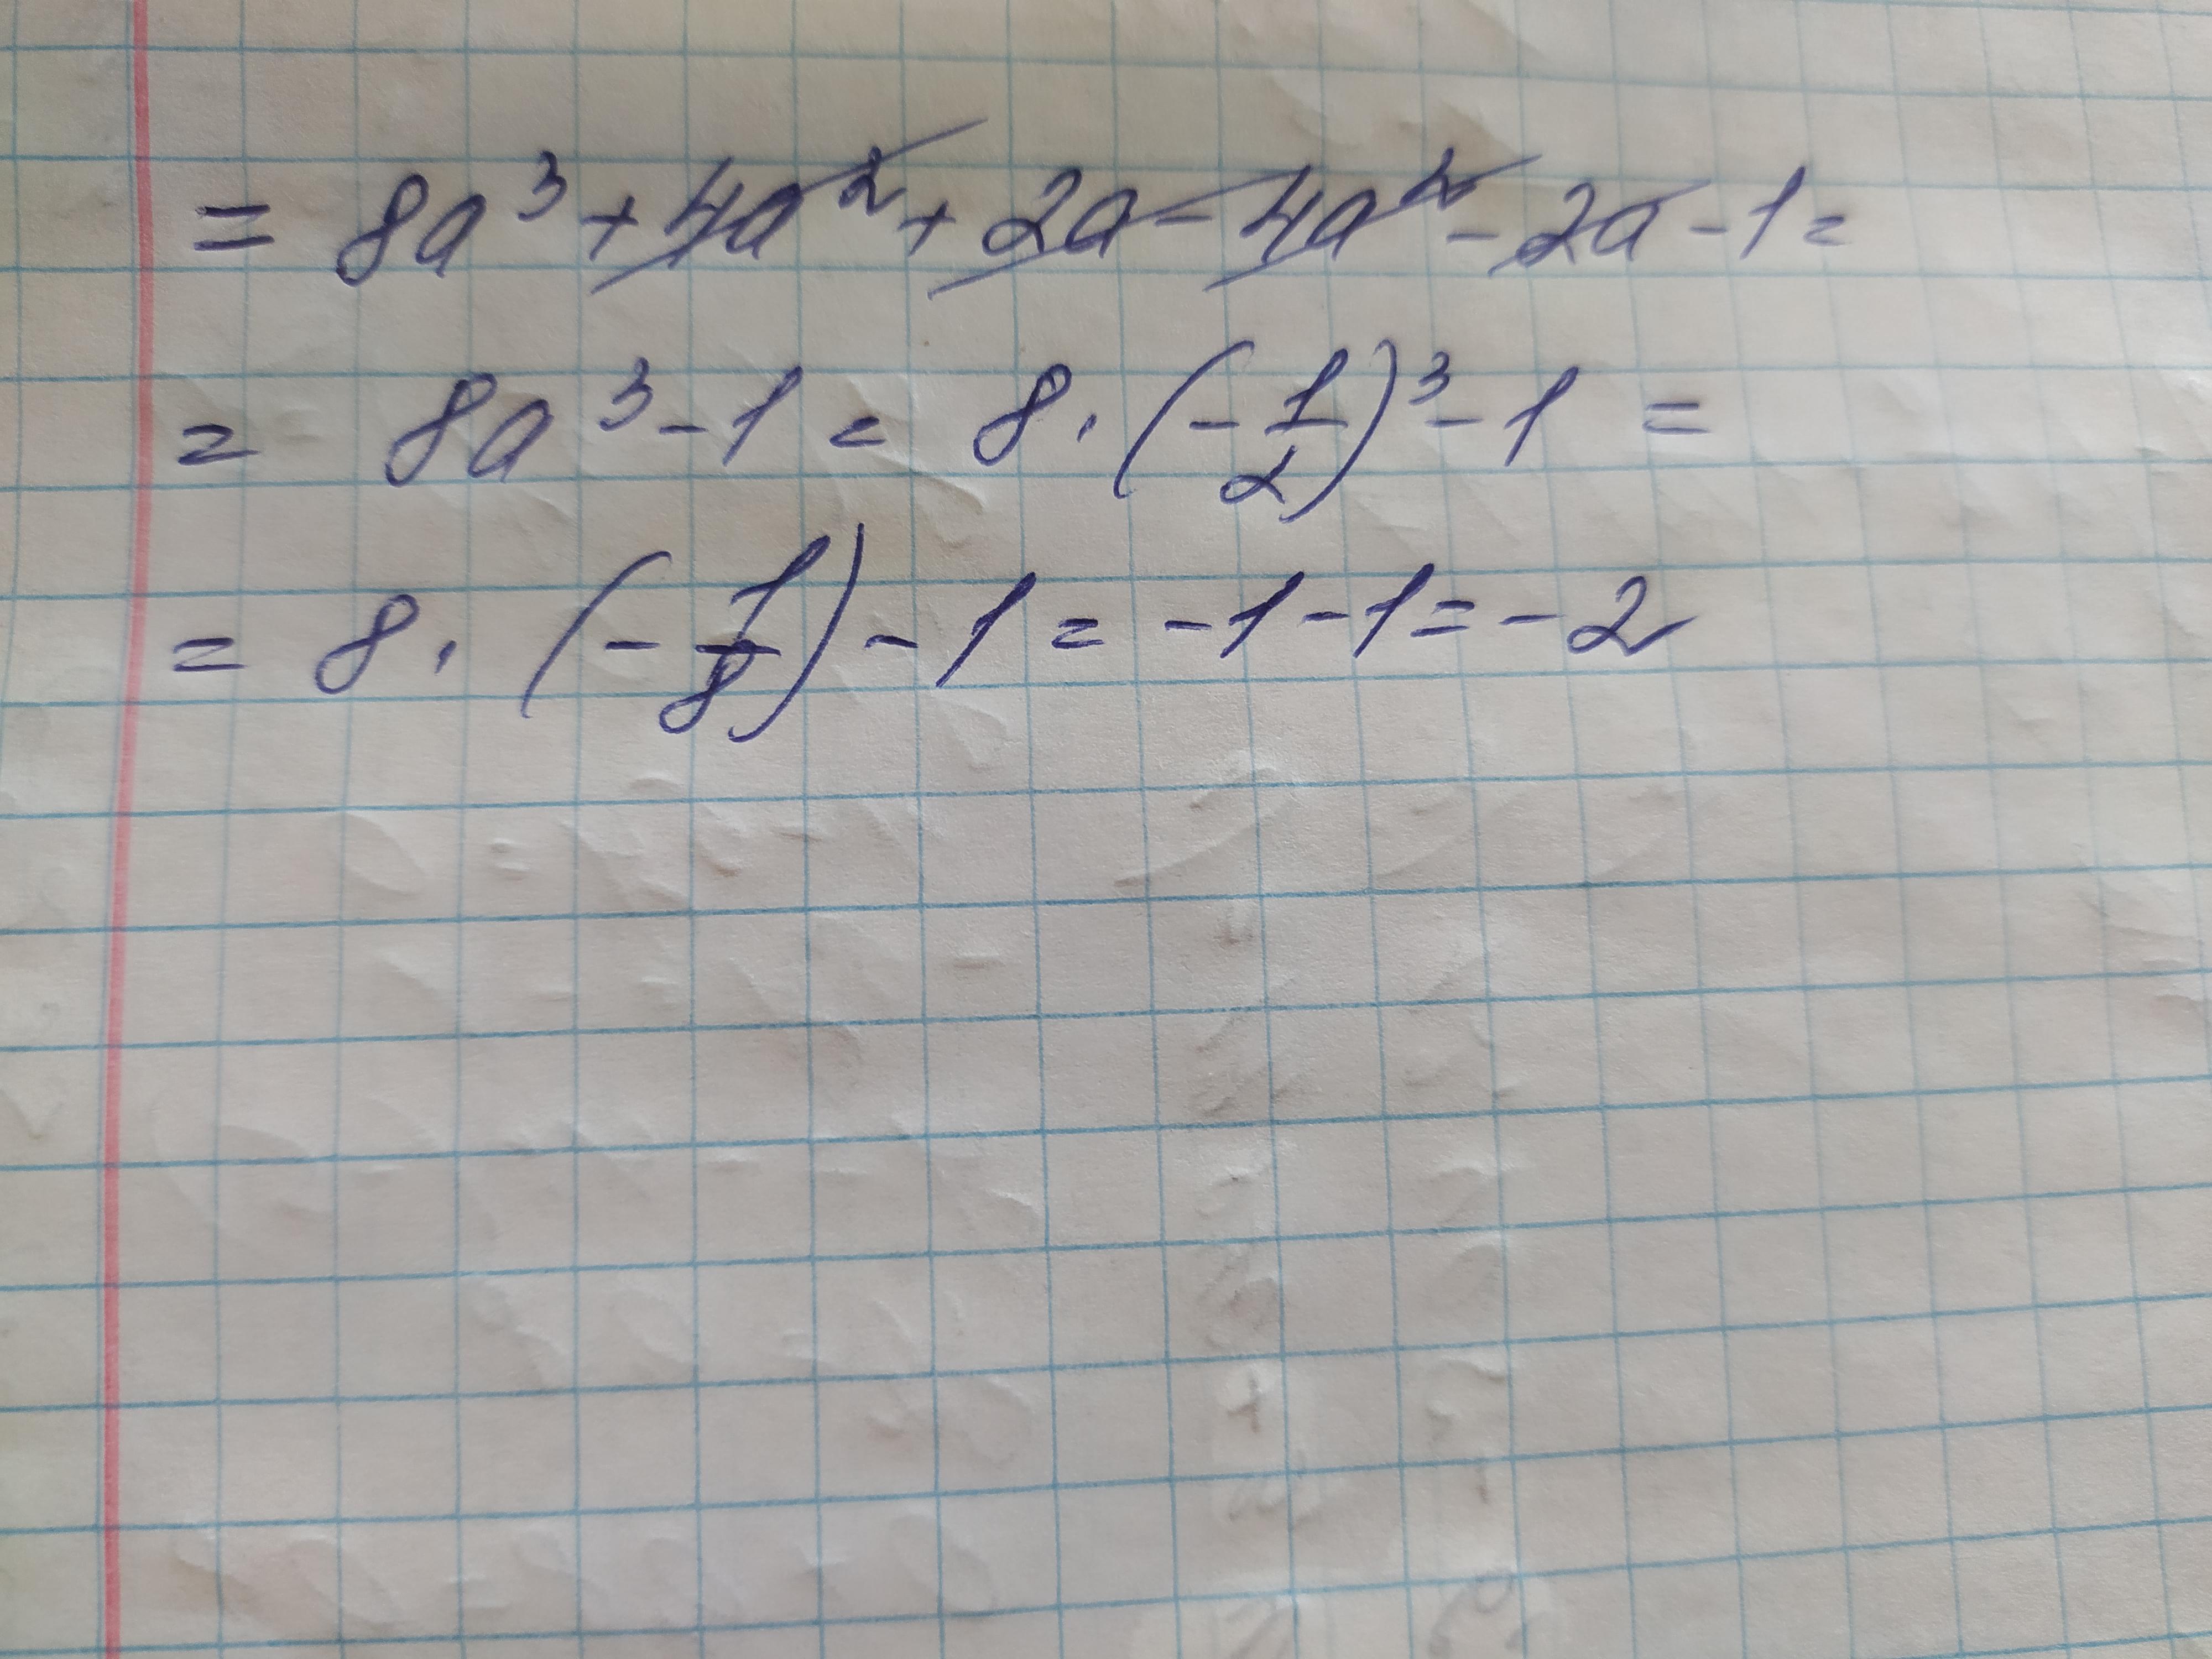 = 8a³ + 4a² + 2a - 4a² - 2a - 1 =
= 8a³ - 1 = 8 · (- 1/2)³ - 1 =
= 8 · (- 1/8) - 1 = - 1 - 1 = - 2